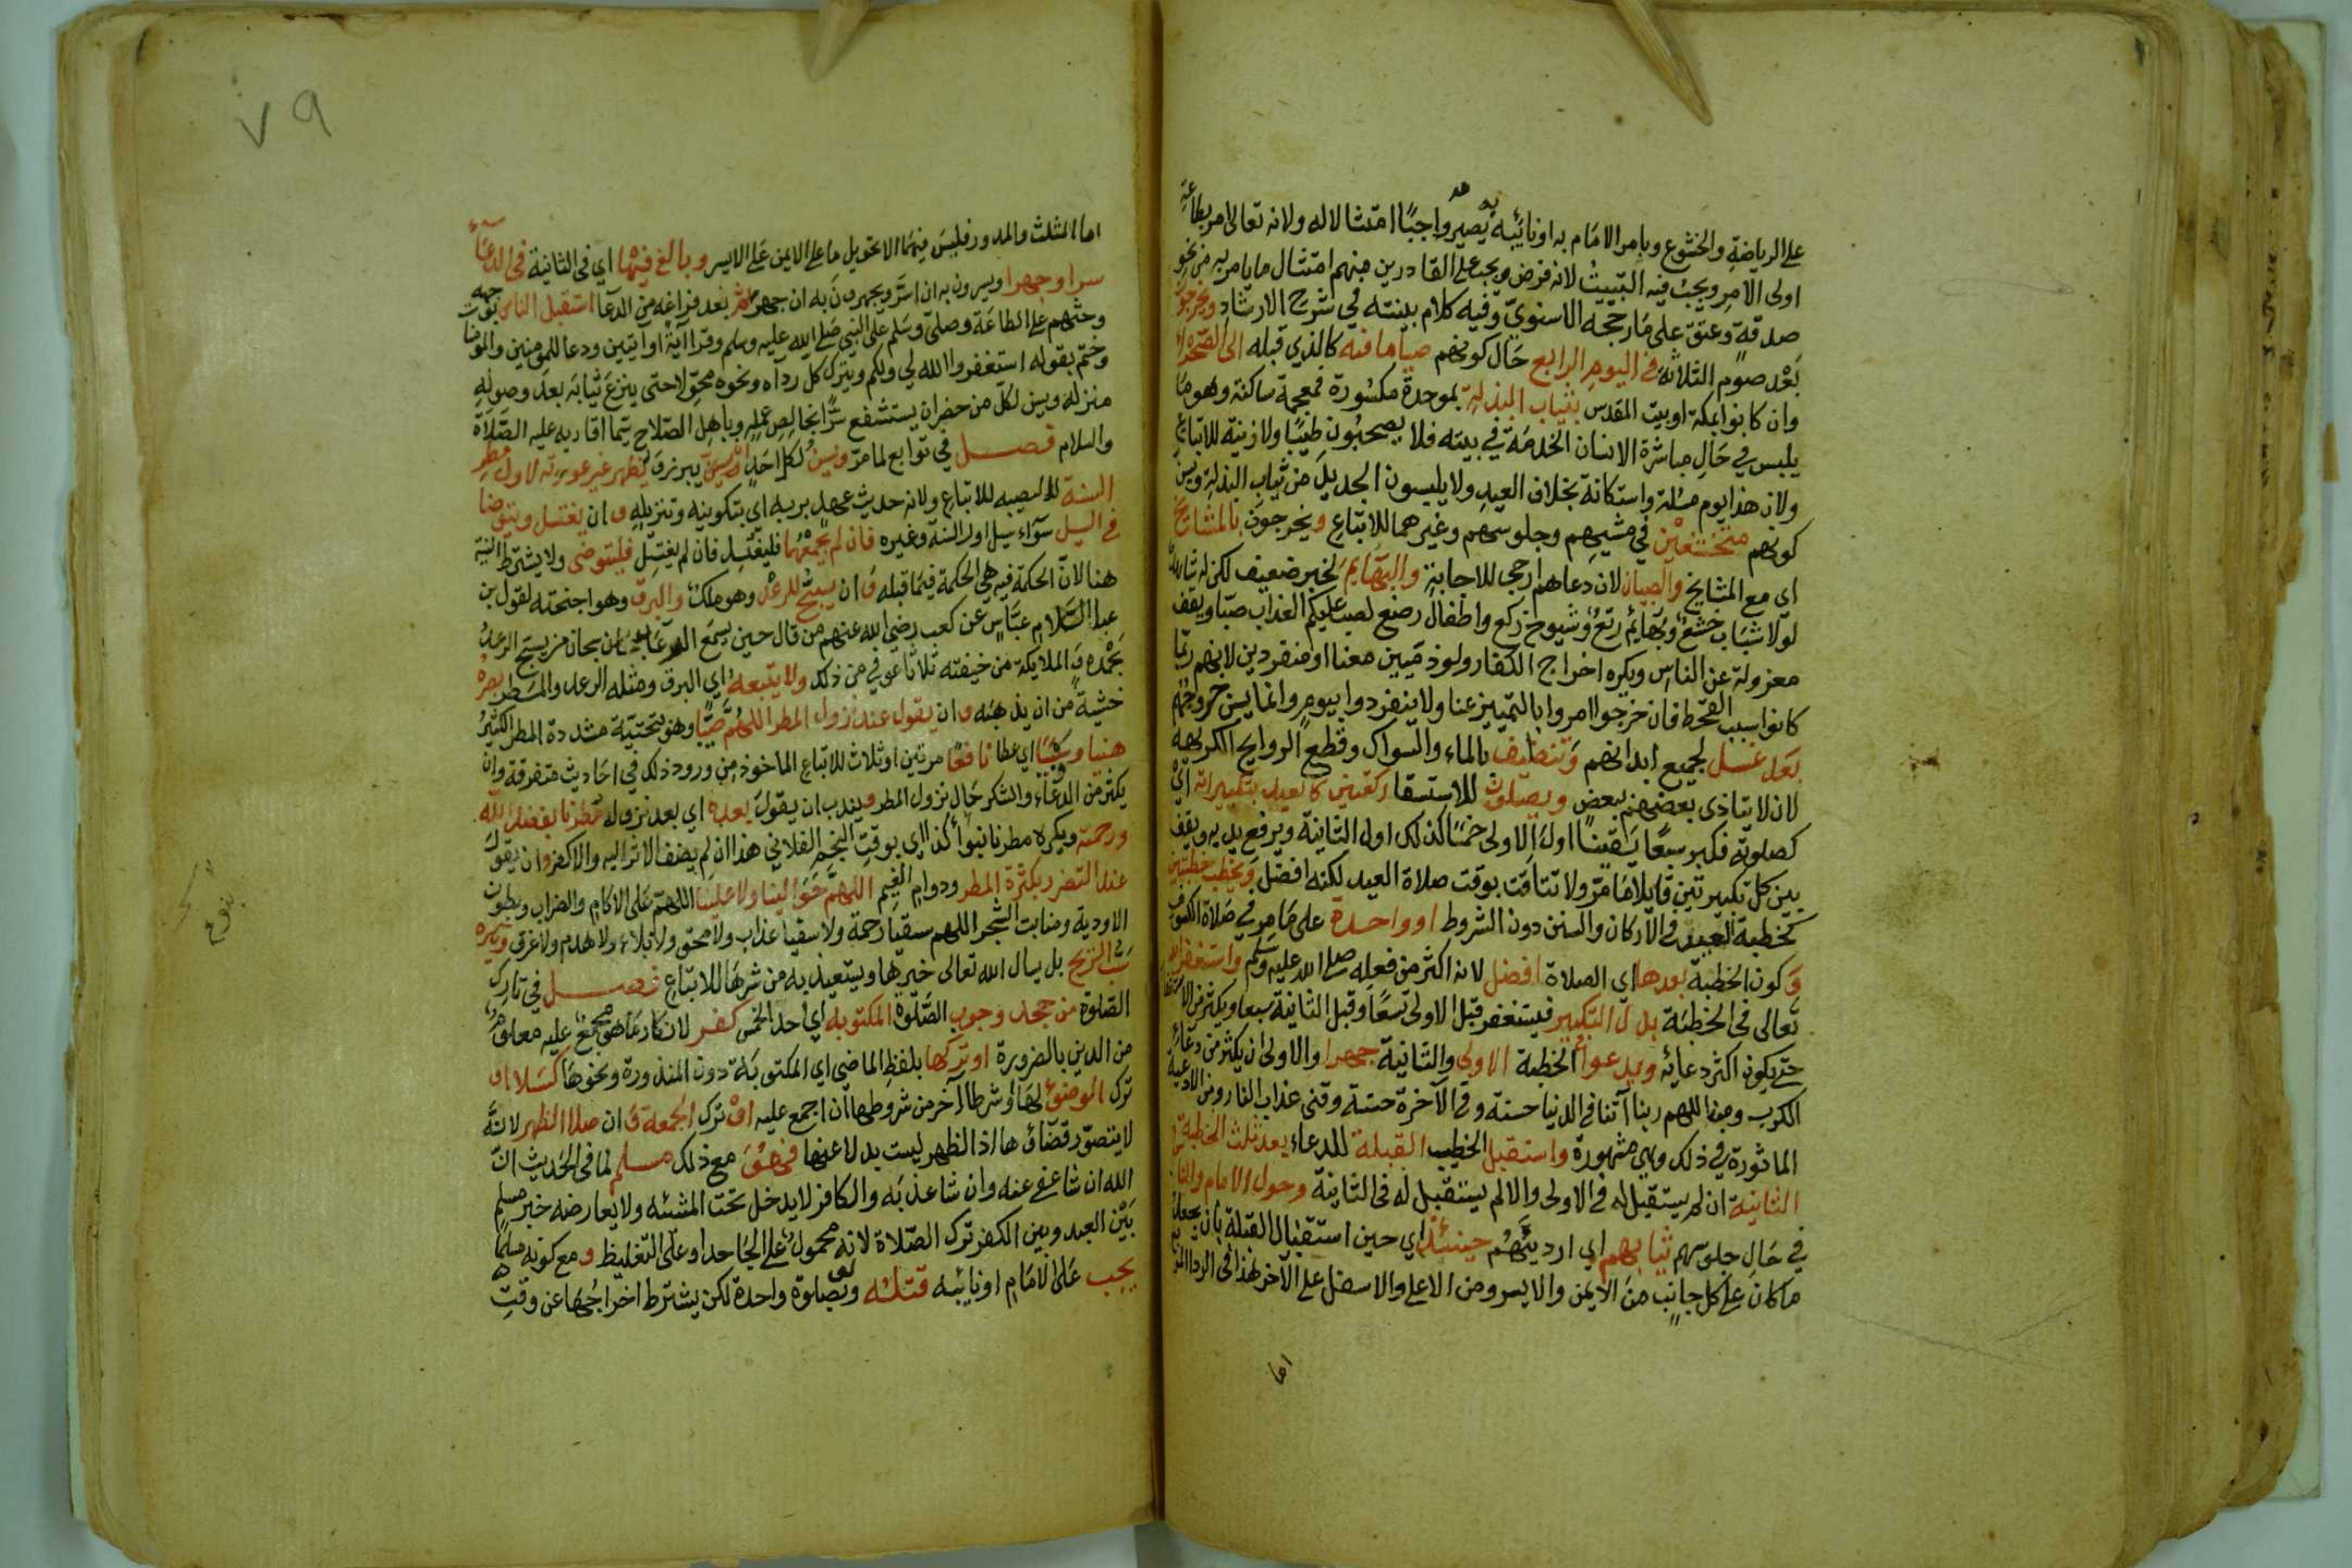 على الرياضة والخشوع وبامر الامام به او نائبه يصير واجبًا امتثالا له ولانه تعالى امر بطاعة
اولى الامر ويجب فيه التبييت لانه فرض ويجب على القادرين منهم امتثال ما يامر به من نحو
صدقة وعتق على ما رجحه الاسنوي وفيه كلام بينته في شرح الارشاد ويخرجون
بعد صوم الثلاثة في اليوم الرابع حال كونهم صياما فيه كالذي قبله الى الصحراء
وان كانوا بمكة او بيت المقدس بثياب البذلة بموحدة مكسورة فمعجمة ساكنة وهو ما
يلبس في حال مباشرة الانسان الخدمة في بيته فلا يصحبون طيبًا ولا زينة للاتباع
ولان هذا يوم مسئلة واستكانة بخلاف العيد ولا يلبسون الجديد من ثياب البذلة ويسن
كونهم متخشعين في مشيهم وجلوسهم وغيرهما للاتباع ويخرجون بالمشايخ
اي مع المشايخ والصبيان لان دعاهم ارجى للاجابة والبهايم لخبر ضعيف لكن له شاهد
لولا شباب خشع وبهايم رتع وشيوخ ركع واطفال رضع لصب عليكم العذاب صبا ويقف
معزولة عن الناس ويكره اخراج الكفار ولو ذميين معنا او منفردين لانهم ربما
كانوا سبب القحط فان خرجوا امروا بالتمييز عنا ولا ينفردوا بيوم وانما يسن خروجهم
بعد غسل لجميع ابدانهم وتنظيف بالماء والسواك وقطع الروايح الكريهة
لان لا يتاذى بعضهم ببعض ويصلون للاستسقا ركعتين كالعيد بتكبيراته اي
كصلوته فكبر سبعًا يقينًا اول الاولى خمسًا كذلك اول الثانية ويرفع يديه ويقف
بين كل تكبيرتين قايلا ما مر ولا تتاقت بوقت صلاة العيد لكنه افضل ويخطب خطبتين
كخطبة العيد في الاركان والسنن دون الشروط او واحدة على ما مر في صلاة الكسوف
وكون الخطبة بعدها اي الصلاة افضل لانه اكثر من فعله صلى الله عليه وسلم واستغفر الله
تعالى في الخطبة بدل التكبير فيستغفر قبل الاولى تسعًا وقبل الثانية سبعا ويكثر من الاستغفار
حتى يكون اكثر دعائه ويدعوا الخطبة الاولى والثانية جهرا والاولى ان يكثر من دعاء
الكرب ومن اللهم ربنا آتنا في الدنيا حسنة وفي الآخرة حسنة وقنى عذاب النار ومن الادعية
الماثورة في ذلك وهي مشهورة واستقبل الخطيب القبلة للدعاء بعد ثلث الخطبة
الثانية ان لم يستقبل له في الاولى والا لم يستقبل له في الثانية وحول الامام والناس
في حال جلوسهم ثيابهم اي ارديتهم حينئذ اي حين استقبال القبلة بان يجعل
ما كان على كل جانب من الايمن والايسر ومن الاعلى والاسفل على الآخر هذا في الرداء
اما
٧٩
اما المثلث والمدور فليس فيهما الا تحويل ما على الايمن على الايسر وبالغ فيها اي في الثانية في الدعاء
سرا وجهرا ويسرون به ان اسر ويجهرون به ان جهر ثم بعد فراغه من الدعا استقبل الناس بوجهه
وحثهم على الطاعة وصلى وسلم على النبي صلى الله عليه وسلم وقرا آية او آيتين ودعا للمومنين والمومنا
وختم بقوله استغفروا الله لي ولكم ويترك كل رداه ونحوه محولا حتى ينزع ثيابه بعد وصوله
منزله ويسن لكل من حضر ان يستشفع سرًا بخالص عمله وباهل الصلاح سيما اقاربه عليه الصلاة
والسلام فصل في توابع لما مر ويسن لكل احد ان يبرز ويظهر غير عورته لاول مطر
السنة ليصيبه للاتباع ولانه حديث عهد بربه اي بتكوينه وتنزيله وان يغتسل ويتوضا
في السيل سواء سيل اول السنة وغيره فان لم يجمعهما فليغتسل فان لم يغتسل فليتوضى ولا يشترط النية
هنا لان الحكمة فيه هي الحكمة فيما قبله وان يسبح للرعد وهو ملك والبرق وهو اجنحته لقول بن
عباس عن كعب رضي الله عنهم من قال حين يسمع الرعد سبحان من يسبح الرعد
بحمده والملايكة من خيفته ثلاثا عوفي من ذلك ولا يتبعه اي البرق ومثله الرعد والمطر بصره
خشية من ان يذهبه وان يقول عند نزول المطر اللهم صيبا وهو بتحتية مشددة المطر الكثير
هنيا وسيبًا اي عطا نافعًا مرتين او ثلاث للاتباع الماخوذ من ورود ذلك في احاديث متفرقة وان
يكثر من الدعاء والشكر حال نزول المطر ويندب ان يقول بعده اي بعد نزوله مطرنا بفضل الله
ورحمته ويكره مطرنا بنوأ كذا اي بوقت النجم الفلاني هذا ان لم يضف الاثر اليه والا كفر وان يقول
عند التضرر بكثرة المطر ودوام الغيم اللهم حوالينا ولا علينا اللهم على الاكام والضراب وبطون
الاودية ومنابت الشجر اللهم سقيا رحمة ولا سقيا عذاب ولا محق ولا بلاء ولا هدم ولا غرق ويكره
سب الريح بل يسال الله تعالى خيرها ويستعيذ به من شرها للاتباع فصل في تارك
الصلوة من جحد وجوب الصلوة المكتوبه اي احد الخمس كفر لانكار ما هو مجمع عليه معلوم
من الدين بالضرورة او تركها بلفظ الماضي اي المكتوبة دون المنذورة ونحوها كسلا او
ترك الوضوء لها او شرطا آخر من شروطها ان اجمع عليه او ترك الجمعة وان صلا الظهر لانه
لا يتصور قضاؤها اذ الظهر ليست بدلا عنها فهو مع ذلك مسلم لما في الحديث ان
الله ان شا عفى عنه وان شا عذبه والكافر لا يدخل تحت المشئه ولا يعارضه خبر مسلم
بين العبد وبين الكفر ترك الصلاة لانه محمول على الجاحد او على التغليظ ومع كونه مسلمًا
يجب على الامام او نائبه قتله ولو بصلوة واحدة لكن يشترط اخراجها عن وقت